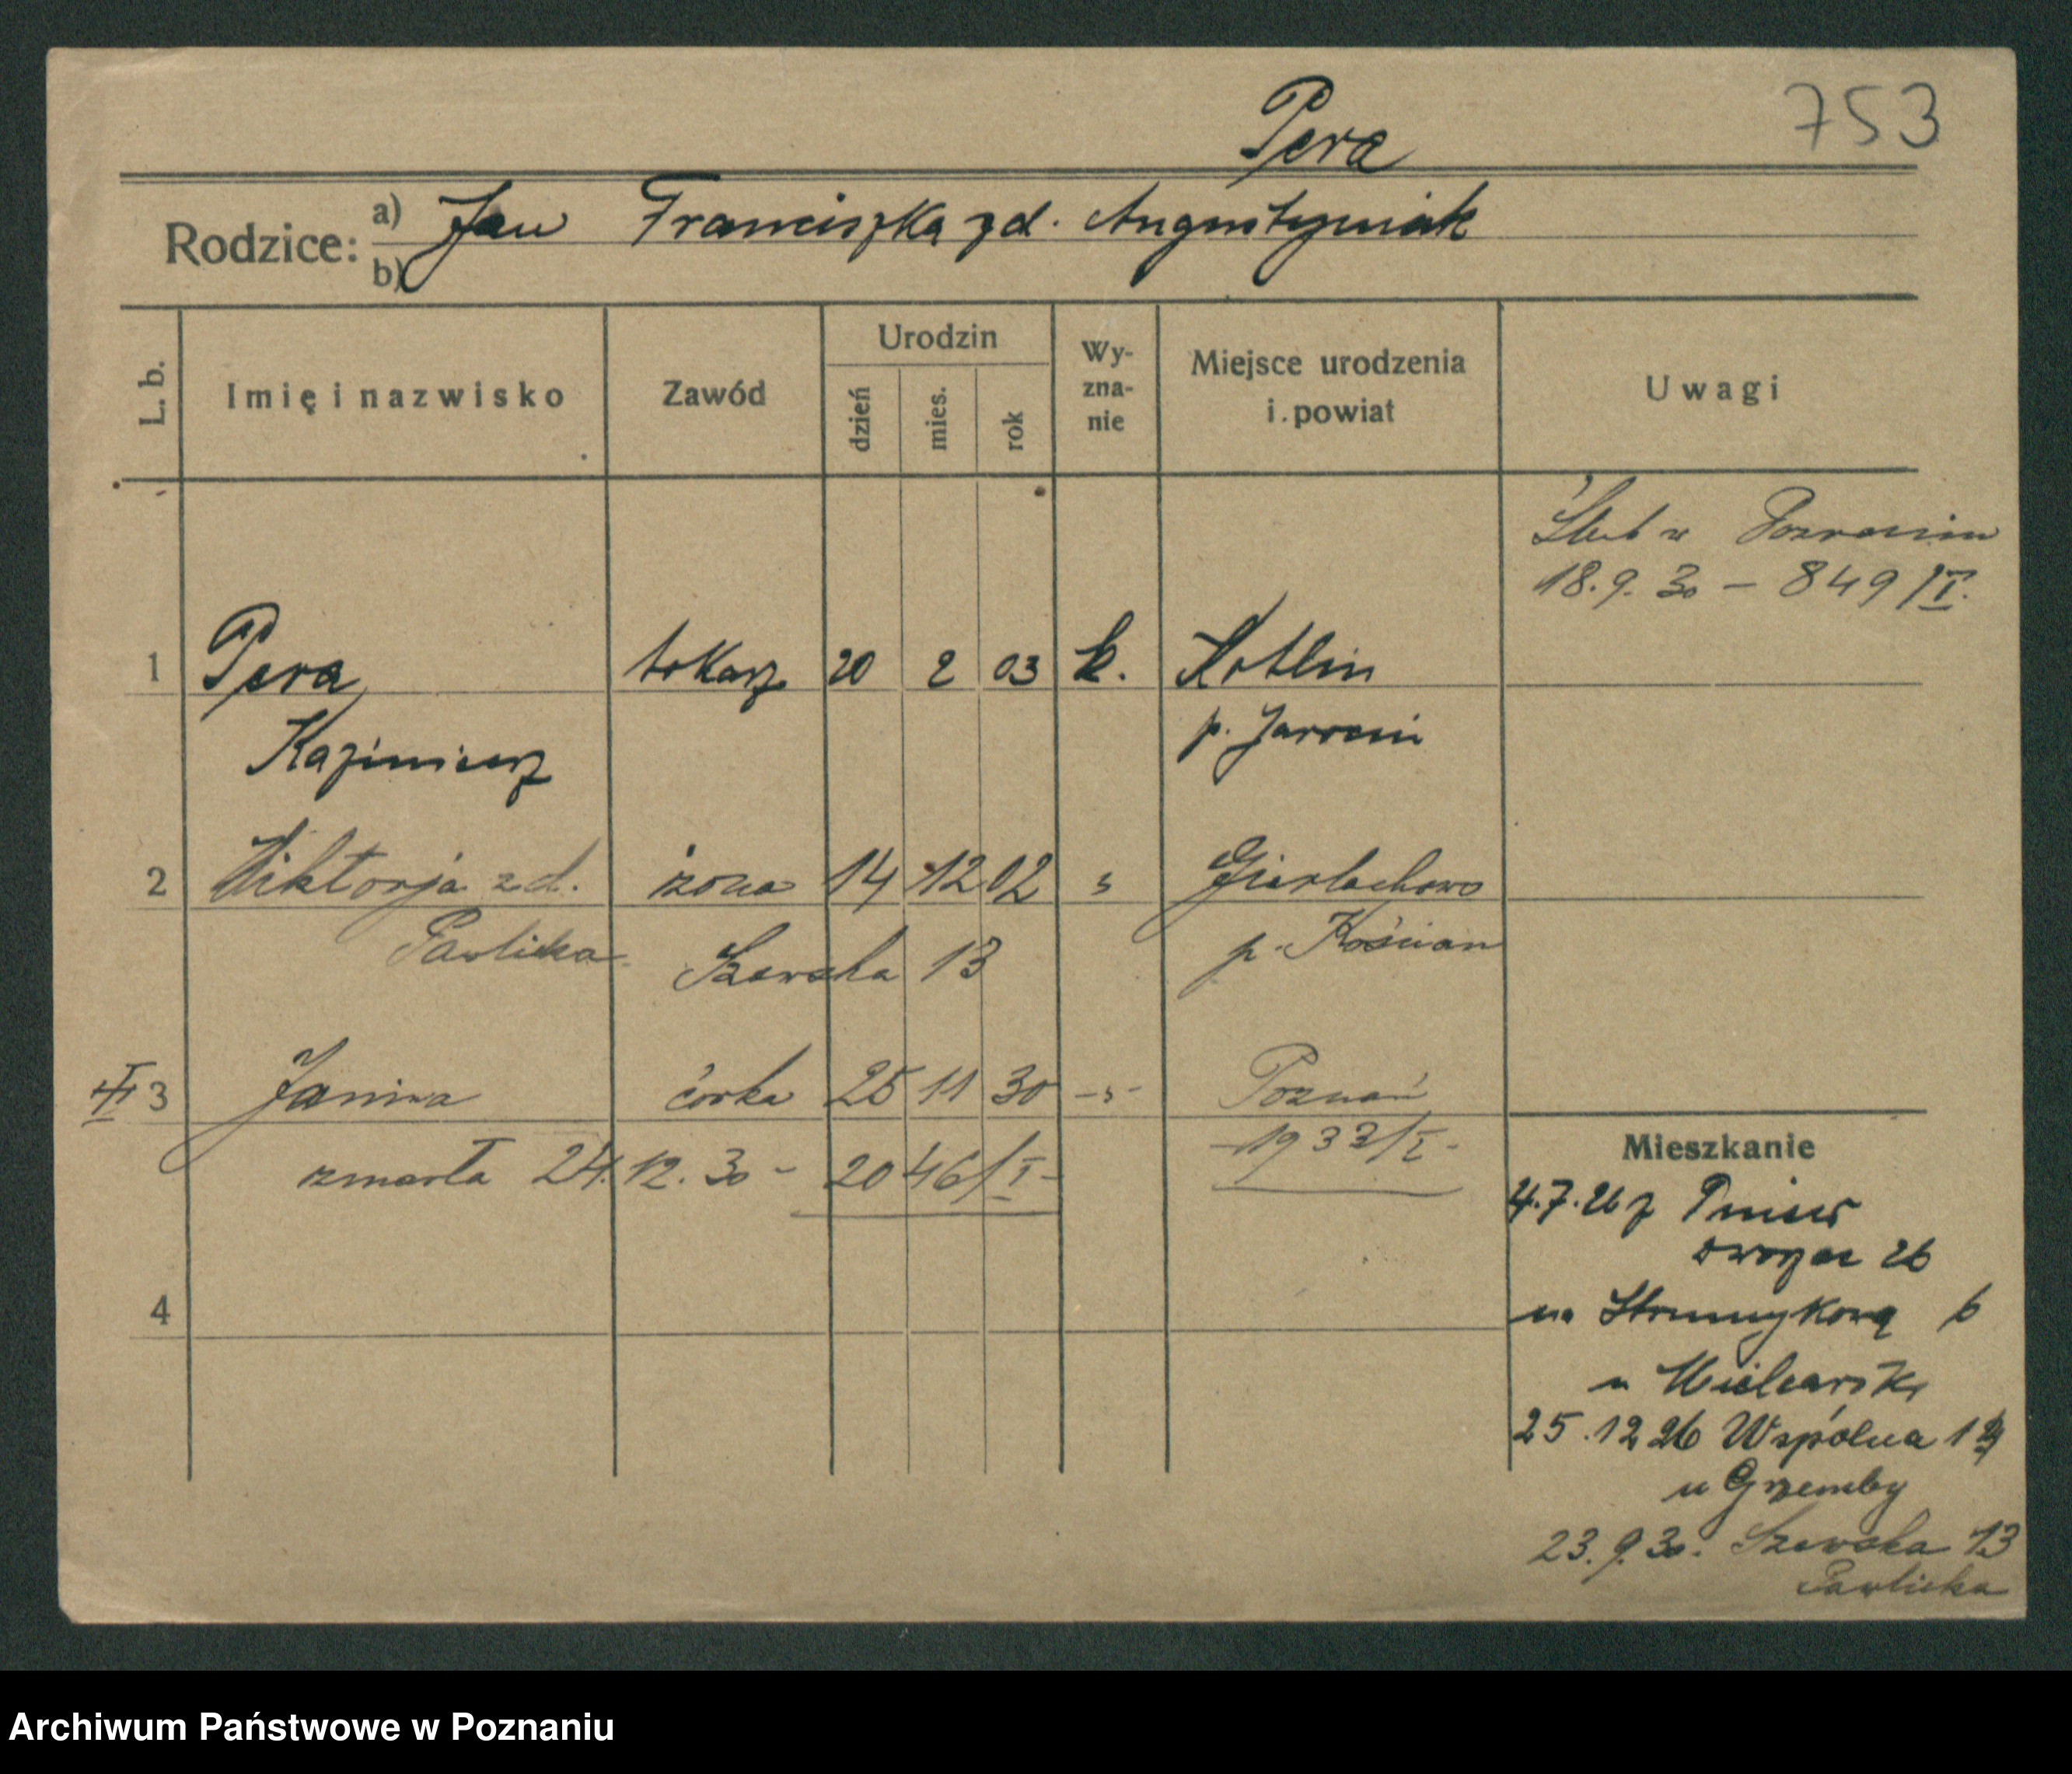 Pera 753
Rodzice: a) Jan Franciszka zd. Augustyniak
b)
L. b. Imię i nazwisko Zawód Urodzin dzień mies. rok Wy-zna-nie Miejsce urodzenia i powiat Uwagi
Ślub w Poznaniu
18.9.30 – 849/I.
1 Pera tokarz 20 2 03 k. Kotlin
Kazimierz p. Jarocin
2 Wiktorja zd. żona 14 12 02 s Gierlachowo
Pawlicka Szewska 13 p. Kościan
3 Janina córka 25 11 30 -s- Poznań
zmarła 24.12.30 - 2046/I - -1933/I-
Mieszkanie
4.7.26 z Pniew
26
4
na Strumykową 6
u
25.12 26 Wspólna
u Grzemby
23.9.30. Szewska 13
Pawlicka
Archiwum Państwowe w Poznaniu